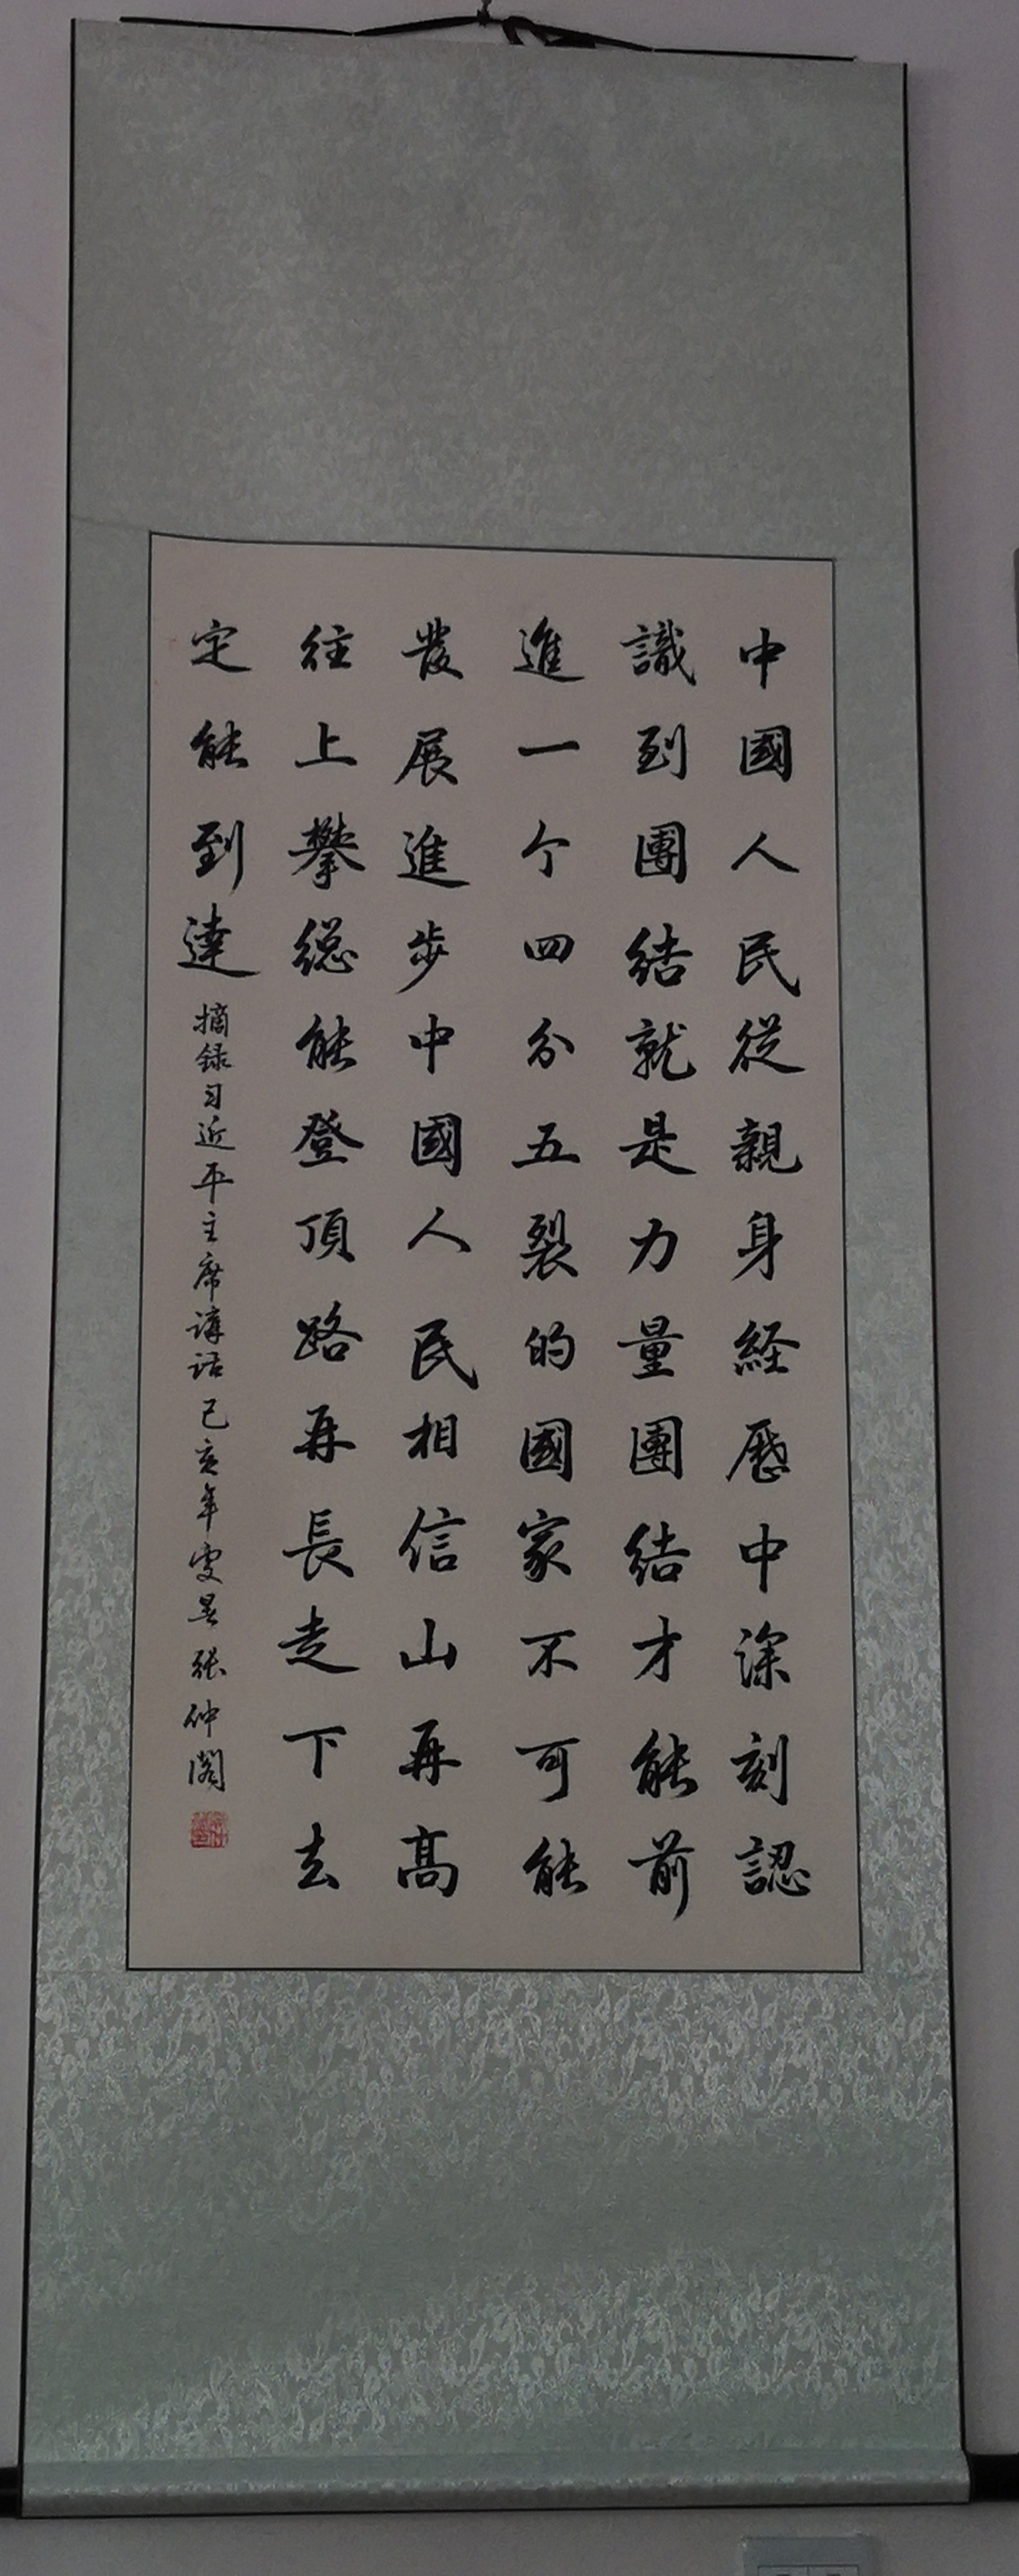 中國人民從親身経歷中深刻認
識到團結就是力量團結才能前
進一个四分五裂的國家不可能
發展進步中國人民相信山再髙
往上攀総能登頂路再長走下去
定能到達
摘録习近平主席講话己亥年雯昙張仲閣